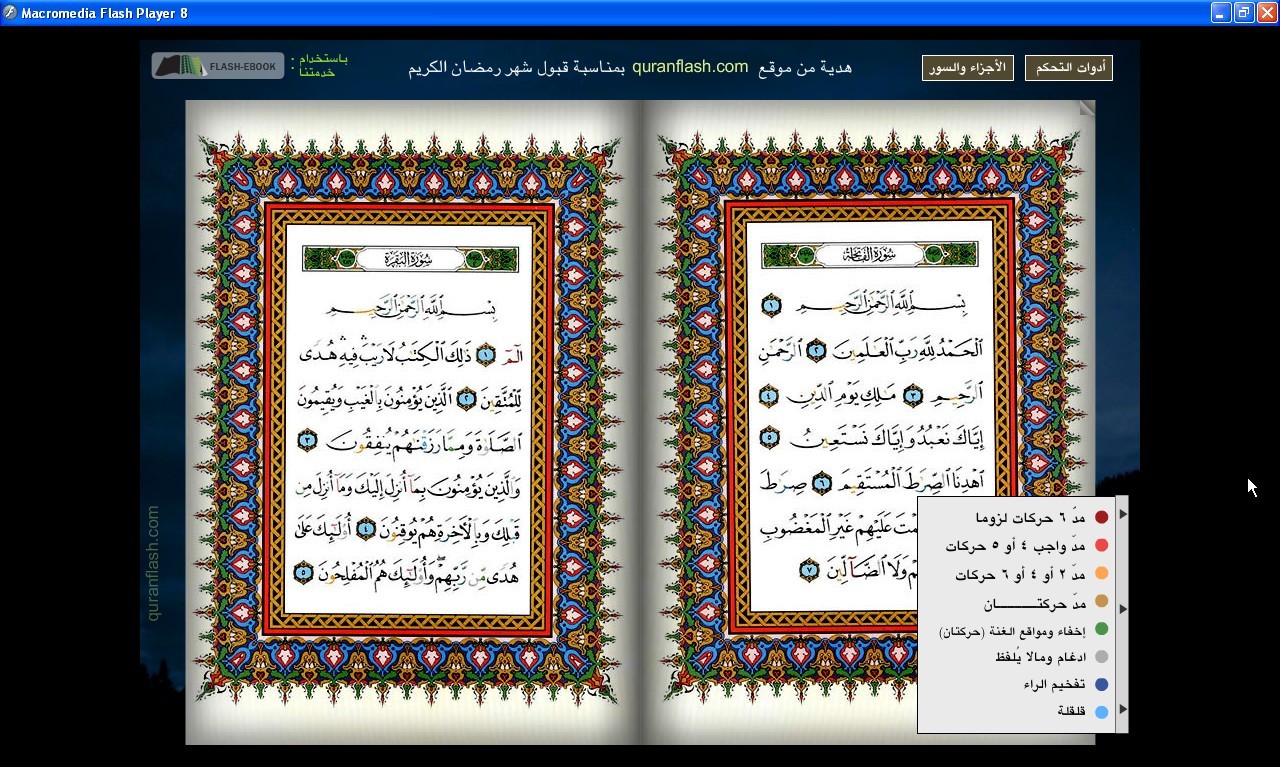 Macromedia Flash Player 8
أدوات التحكم
الأجزاء والسور
هدية من موقع quranflash.com بمناسبة قبول شهر رمضان الكريم
باستخدام :
خدمتنا
FLASH-EBOOK
سُورَةُ الفَاتِحَةِ
بِسْمِ ٱللَّهِ ٱلرَّحْمَٰنِ ٱلرَّحِيمِ ١
ٱلْحَمْدُ لِلَّهِ رَبِّ ٱلْعَٰلَمِينَ ٢ ٱلرَّحْمَٰنِ
ٱلرَّحِيمِ ٣ مَٰلِكِ يَوْمِ ٱلدِّينِ ٤
إِيَّاكَ نَعْبُدُ وَإِيَّاكَ نَسْتَعِينُ ٥
ٱهْدِنَا ٱلصِّرَٰطَ ٱلْمُسْتَقِيمَ ٦ صِرَٰطَ
مْتَ عَلَيْهِمْ غَيْرِ ٱلْمَغْضُوبِ
مْ وَلَا ٱلضَّآلِّينَ ٧
سُورَةُ البَقَرَةِ
بِسْمِ ٱللَّهِ ٱلرَّحْمَٰنِ ٱلرَّحِيمِ
الٓمٓ ١ ذَٰلِكَ ٱلْكِتَٰبُ لَا رَيْبَ ۛ فِيهِ ۛ هُدًى
لِّلْمُتَّقِينَ ٢ ٱلَّذِينَ يُؤْمِنُونَ بِٱلْغَيْبِ وَيُقِيمُونَ
ٱلصَّلَوٰةَ وَمِمَّا رَزَقْنَٰهُمْ يُنفِقُونَ ٣
وَٱلَّذِينَ يُؤْمِنُونَ بِمَآ أُنزِلَ إِلَيْكَ وَمَآ أُنزِلَ مِن
قَبْلِكَ وَبِٱلْأَخِرَةِ هُمْ يُوقِنُونَ ٤ أُو۟لَٰٓئِكَ عَلَىٰ
هُدًى مِّن رَّبِّهِمْ ۖ وَأُو۟لَٰٓئِكَ هُمُ ٱلْمُفْلِحُونَ ٥
مدّ ٦ حركات لزوما
مدّ واجب ٤ أو ٥ حركات
مدّ ٢ أو ٤ أو ٦ حركات
مدّ حركتـــــــان
إخفاء ومواقع الغنة (حركتان)
ادغام ومالا يُلفظ
تفخيم الراء
قلقلة
quranflash.com